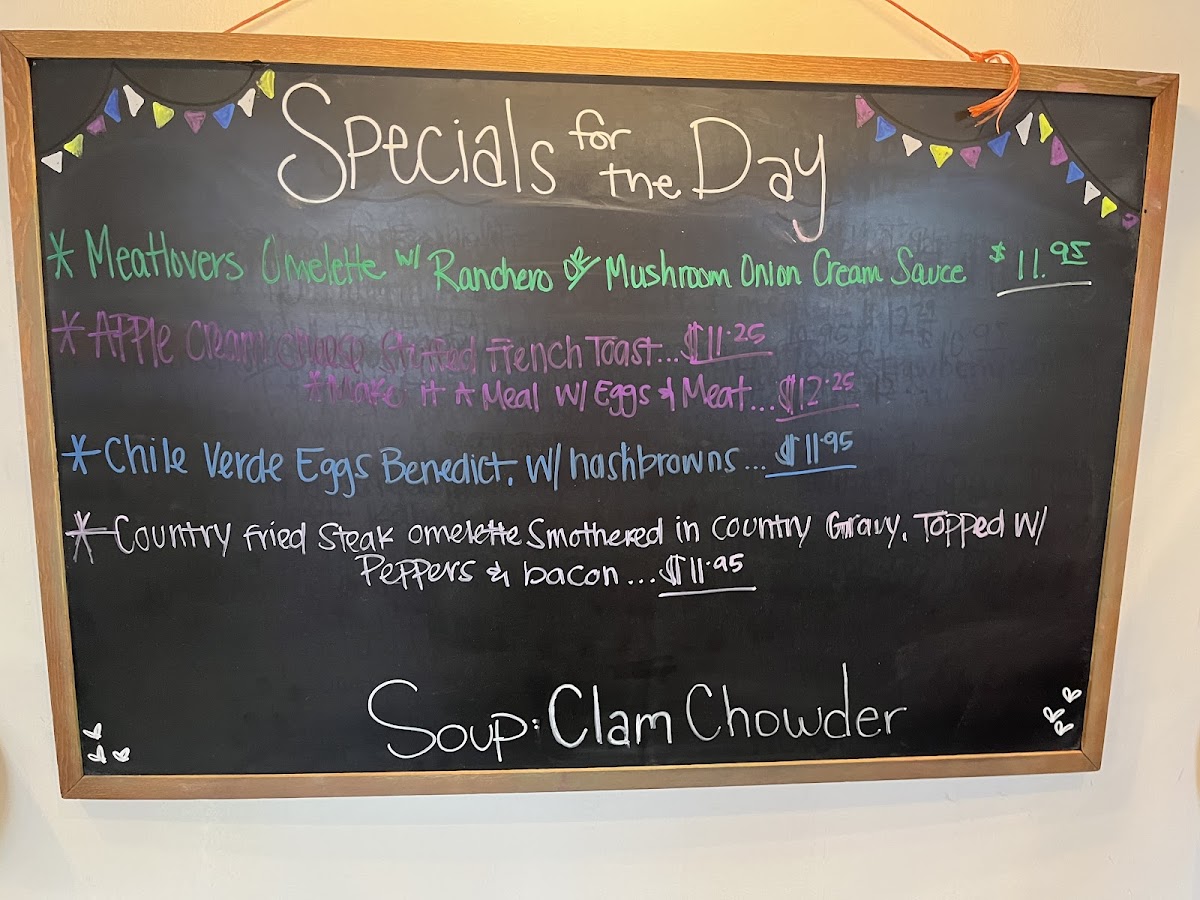 Specials for the Day
* Meatlovers Omelette w/ Ranchero or Mushroom Onion Cream Sauce $11.95
* Apple Cream Cheese Stuffed French Toast...$11.25
* Make it A Meal W/ Eggs & Meat...$12.25
* Chile Verde Eggs Benedict. W/ hashbrowns...$11.95
* Country Fried Steak omelette Smothered in Country Gravy. Topped W/
Peppers & bacon...$11.95
Soup: Clam Chowder